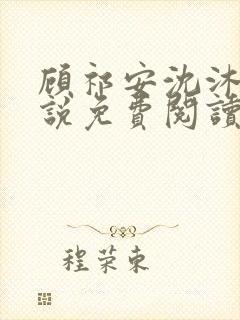 顾祁安沈沐
說免費閱讀
程荣東